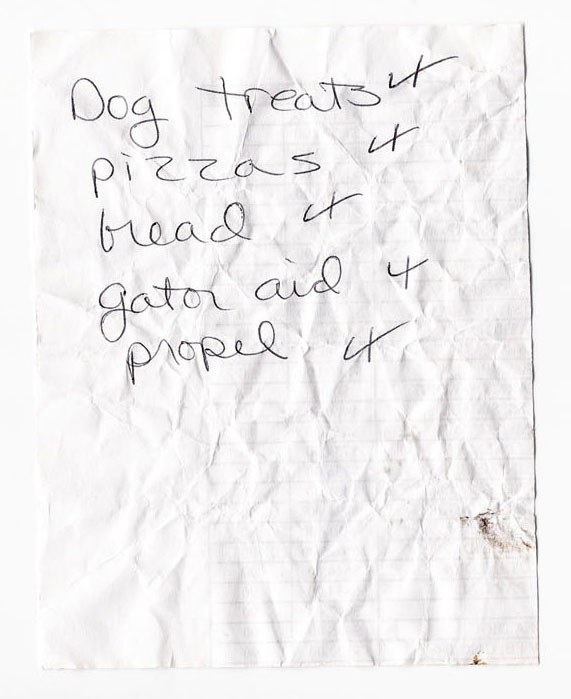 Dog treats 4
pizzas 4
bread 4
gator aid 4
propel 4